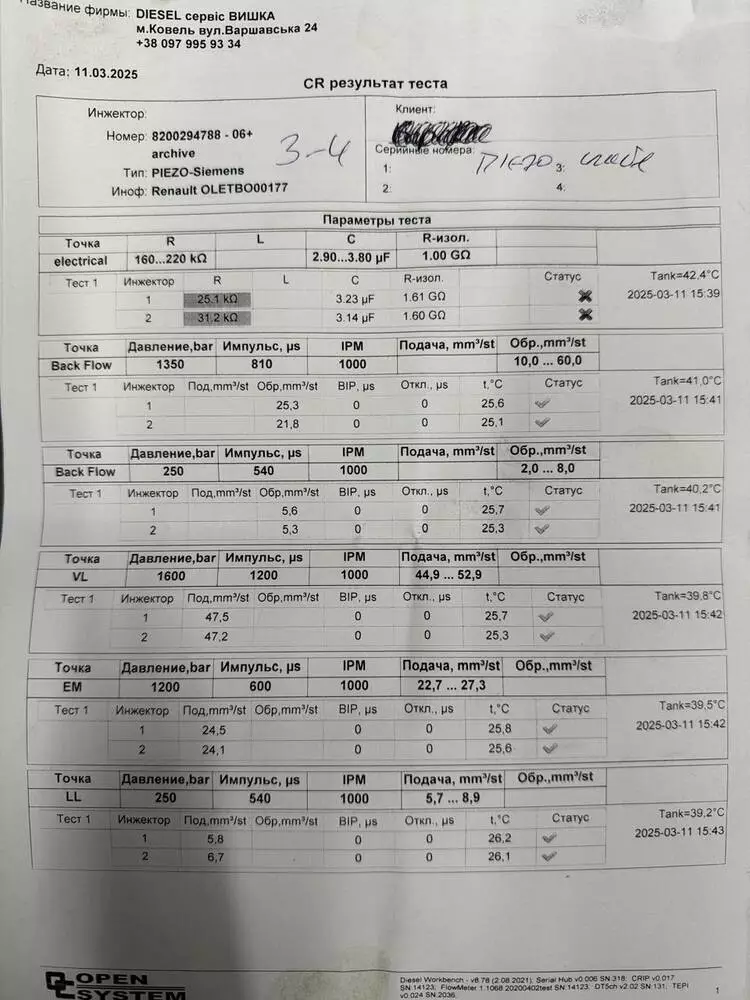 Название фирмы: DIESEL сервіс ВИШКА
м.Ковель вул.Варшавська 24
+38 097 995 93 34
Дата: 11.03.2025
CR результат теста
Инжектор:
Номер: 8200294788 - 06+
archive
Тип: PIEZO-Siemens
Иноф: Renault OLETBO00177
3-4
Клиент:
Серийные номера:
1: PIEZO 3:
2: 4:
Параметры теста
Точка R L C R-изол.
electrical 160...220 kΩ 2.90...3.80 µF 1.00 GΩ
Тест 1 Инжектор R L C R-изол. Статус Tank=42.4°C
1 25.1 kΩ 3.23 µF 1.61 GΩ 2025-03-11 15:39
2 31.2 kΩ 3.14 µF 1.60 GΩ
Точка Давление,bar Импульс, µs IPM Подача, mm³/st Обр.,mm³/st
Back Flow 1350 810 1000 10,0 ... 60,0
Тест 1 Инжектор Под,mm³/st Обр,mm³/st BIP, µs Откл., µs t,°C Статус Tank=41,0°C
1 25,3 0 0 25,6 2025-03-11 15:41
2 21,8 0 0 25,1
Точка Давление,bar Импульс, µs IPM Подача, mm³/st Обр.,mm³/st
Back Flow 250 540 1000 2,0 ... 8,0
Тест 1 Инжектор Под,mm³/st Обр,mm³/st BIP, µs Откл., µs t,°C Статус Tank=40,2°C
1 5,6 0 0 25,7 2025-03-11 15:41
2 5,3 0 0 25,3
Точка Давление,bar Импульс, µs IPM Подача, mm³/st Обр.,mm³/st
VL 1600 1200 1000 44,9 ... 52,9
Тест 1 Инжектор Под,mm³/st Обр,mm³/st BIP, µs Откл., µs t,°C Статус Tank=39,8°C
1 47,5 0 0 25,7 2025-03-11 15:42
2 47,2 0 0 25,3
Точка Давление,bar Импульс, µs IPM Подача, mm³/st Обр.,mm³/st
EM 1200 600 1000 22,7 ... 27,3
Тест 1 Инжектор Под,mm³/st Обр,mm³/st BIP, µs Откл., µs t,°C Статус Tank=39,5°C
1 24,5 0 0 25,8 2025-03-11 15:42
2 24,1 0 0 25,6
Точка Давление,bar Импульс, µs IPM Подача, mm³/st Обр.,mm³/st
LL 250 540 1000 5,7 ... 8,9
Тест 1 Инжектор Под,mm³/st Обр,mm³/st BIP, µs Откл., µs t,°C Статус Tank=39,2°C
1 5,8 0 0 26,2 2025-03-11 15:43
2 6,7 0 0 26,1
OPEN SYSTEM
Diesel Workbench - v8.78 (2.08.2021); Serial Hub v0.006 SN:318; CRIP v0.017
SN:14123; FlowMeter 1.1068 20200402test SN:14123; DT5ch v2.02 SN:131; TEPI
v0.024 SN:2036.
1